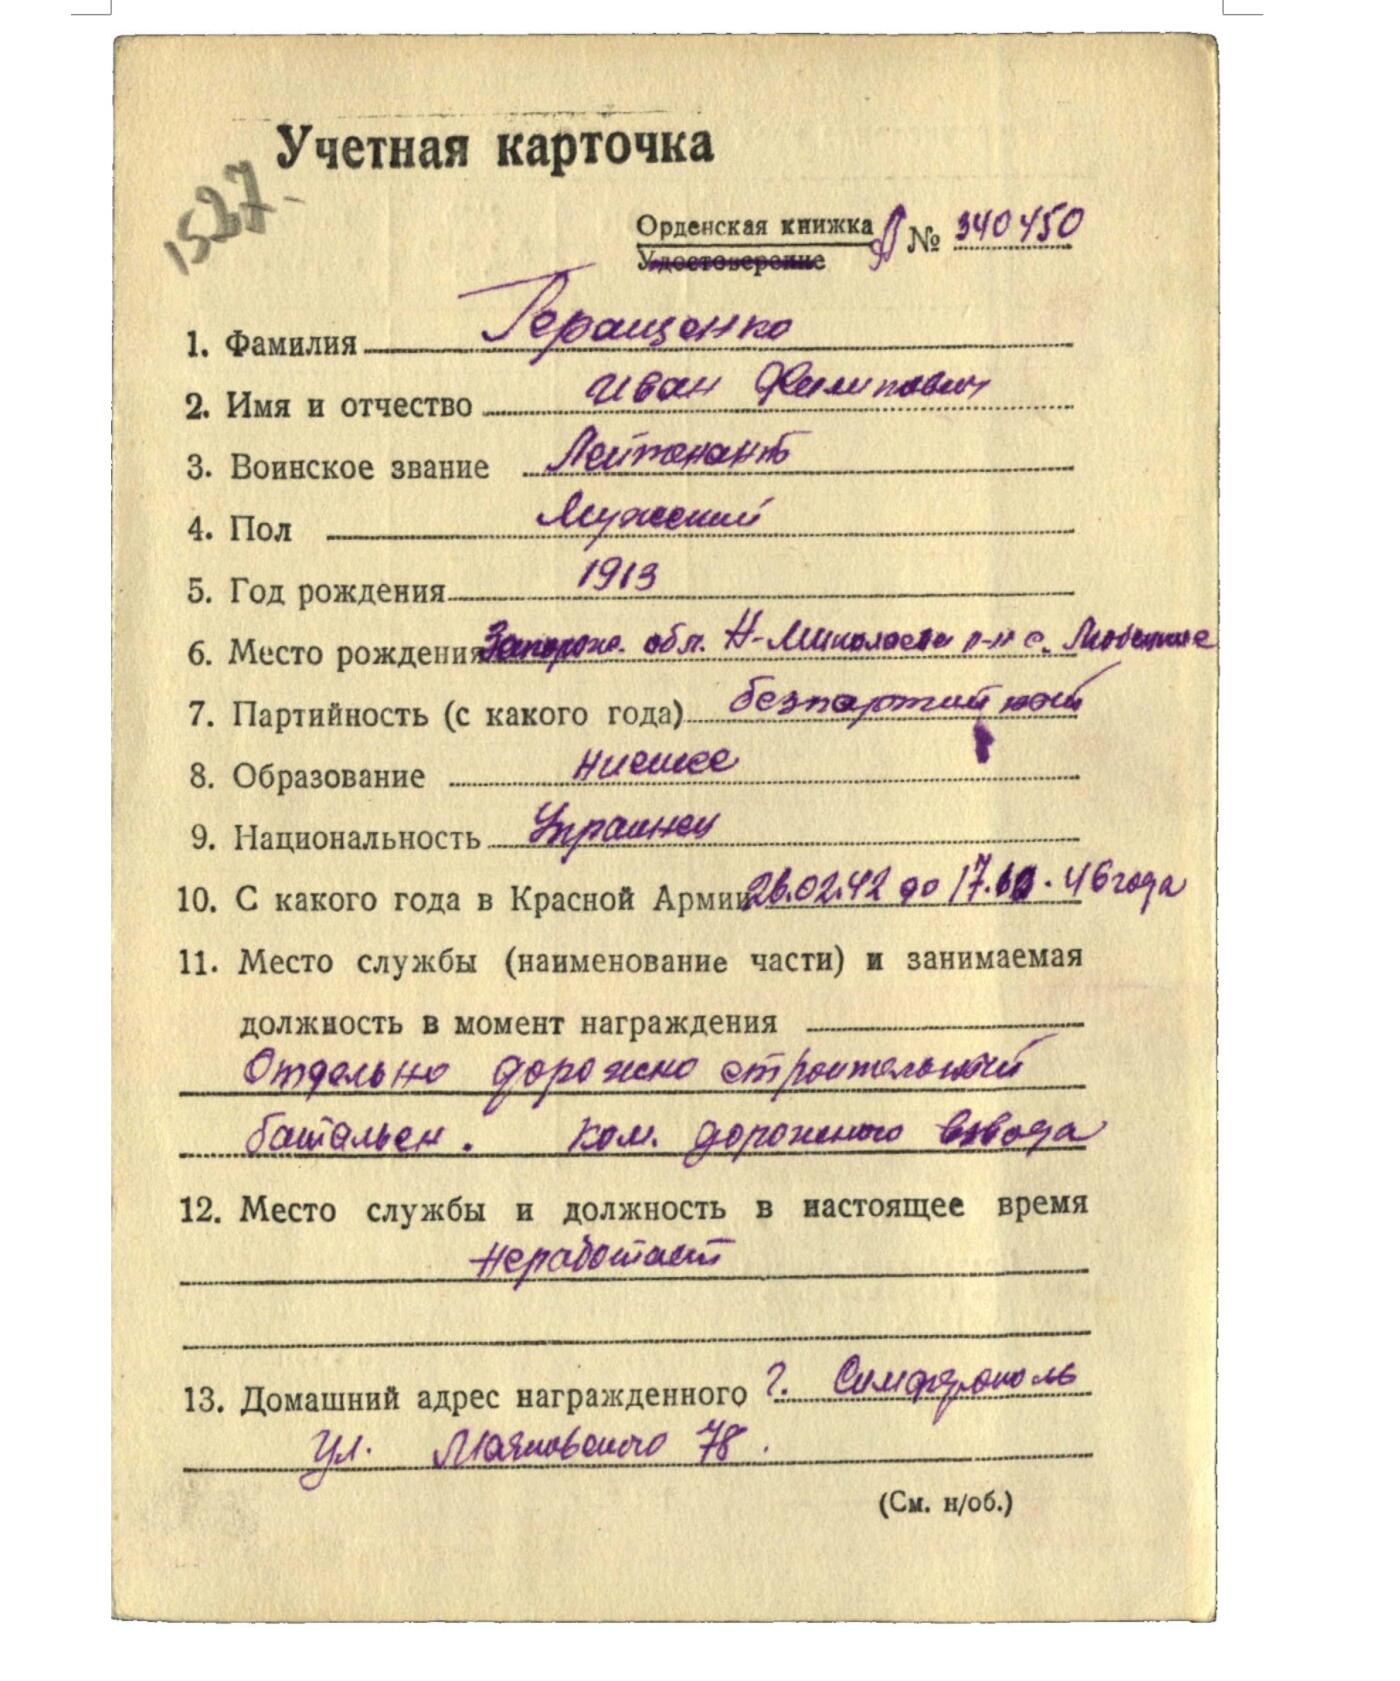 Учетная карточка
1527-
Орденская книжка Д № 340450
Удостоверение
1. Фамилия Геращенко
2. Имя и отчество Иван Филипович
3. Воинское звание Лейтенант
4. Пол Мужский
5. Год рождения 1913
6. Место рождения Запорож. обл. Н-Миколаевс р-н с. Любецкое
7. Партийность (с какого года) безпартийный
8. Образование
9. Национальность Украинец
10. С какого года в Красной Армии 26.02.42 до 17. .46 года
11. Место службы (наименование части) и занимаемая
должность в момент награждения
Отдельно дорожно строительный
батальен. Ком. дорожного взвода
12. Место службы и должность в настоящее время
неработает
13. Домашний адрес награжденного г. Симферополь
ул. Маяковского 78.
(См. н/об.)